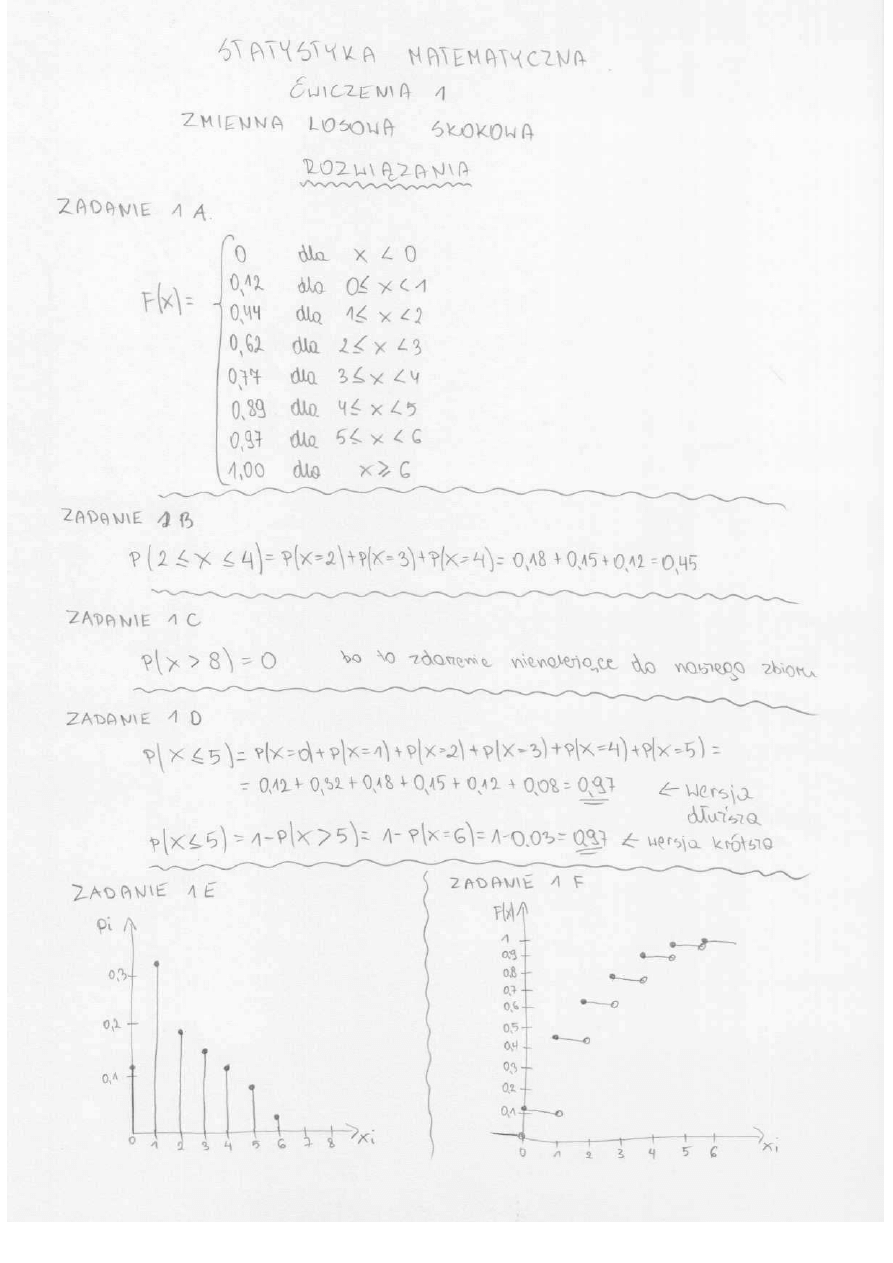 STATYSTYKA MATEMATYCZNA
ĆWICZENIA 1
ZMIENNA LOSOWA SKOKOWA
ROZWIĄZANIA
ZADANIE 1 A.
F(x)=
0 dla x < 0
0,12 dla 0≤ x < 1
0,44 dla 1≤ x < 2
0,62 dla 2≤ x < 3
0,77 dla 3≤ x < 4
0,89 dla 4≤ x < 5
0,97 dla 5≤ x < 6
1,00 dla x ≥ 6
ZADANIE 1 B
P(2 ≤ X ≤ 4)= P(X=2)+P(X=3)+P(X=4)= 0,18 + 0,15 + 0,12 = 0,45
ZADANIE 1 C
P(x > 8) = 0 bo to zdarzenie nienależące do naszego zbioru
ZADANIE 1 D
P(X ≤ 5)= P(X=0)+P(X=1)+P(X=2)+P(X=3)+P(X=4)+P(X=5) =
= 0,12 + 0,32 + 0,18 + 0,15 + 0,12 + 0,08 = 0,97 ← wersja
dłuższa
P(X≤5) = 1-P(X > 5)= 1- P(X=6)= 1-0.03= 0,97 ← wersja krótsza
ZADANIE 1 E
pi
0,3
0,2
0,1
0 1 2 3 4 5 6 7 8 xi
ZADANIE 1 F
F(x)
1
0,9
0,8
0,7
0,6
0,5
0,4
0,3
0,2
0,1
0 1 2 3 4 5 6 xi